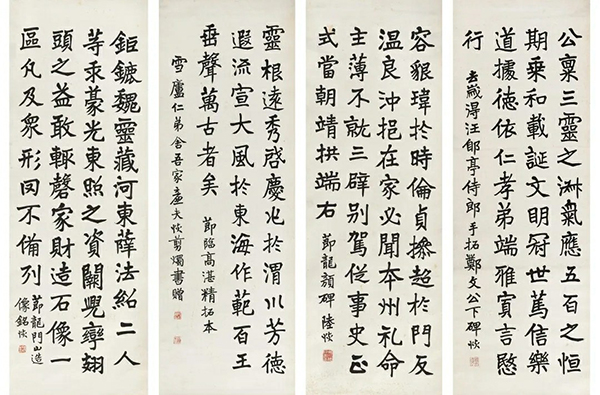 公禀三靈之淋氣應五百之恒
期乗和載誕文明冠世篤信樂
道據德依仁孝弟端雅寅言愍
行
去歲得汪郋亭侍郎手拓鄭文公下碑恢
容貎瑋於時倫貞摻超於門友
温良沖挹在家必聞夲州礼命
主薄不就三辟别駕従事史正
式當朝靖拱端右
節龍顔碑 陸恢
靈根遠秀啓慶兆於渭川芳德
遐流宣大風於東海作範百王
垂聲萬古者矣
節臨高湛精拓本
雪廬仁弟舍吾家壺天恢剪燭書贈
鉅鑣魏靈藏河東薛法紹二人
等乗豪光東照之資闕兜率翅
頭之益敢輙磬家財造石像一
區凡及衆形罔不備列
節龍門山造
像銘恢